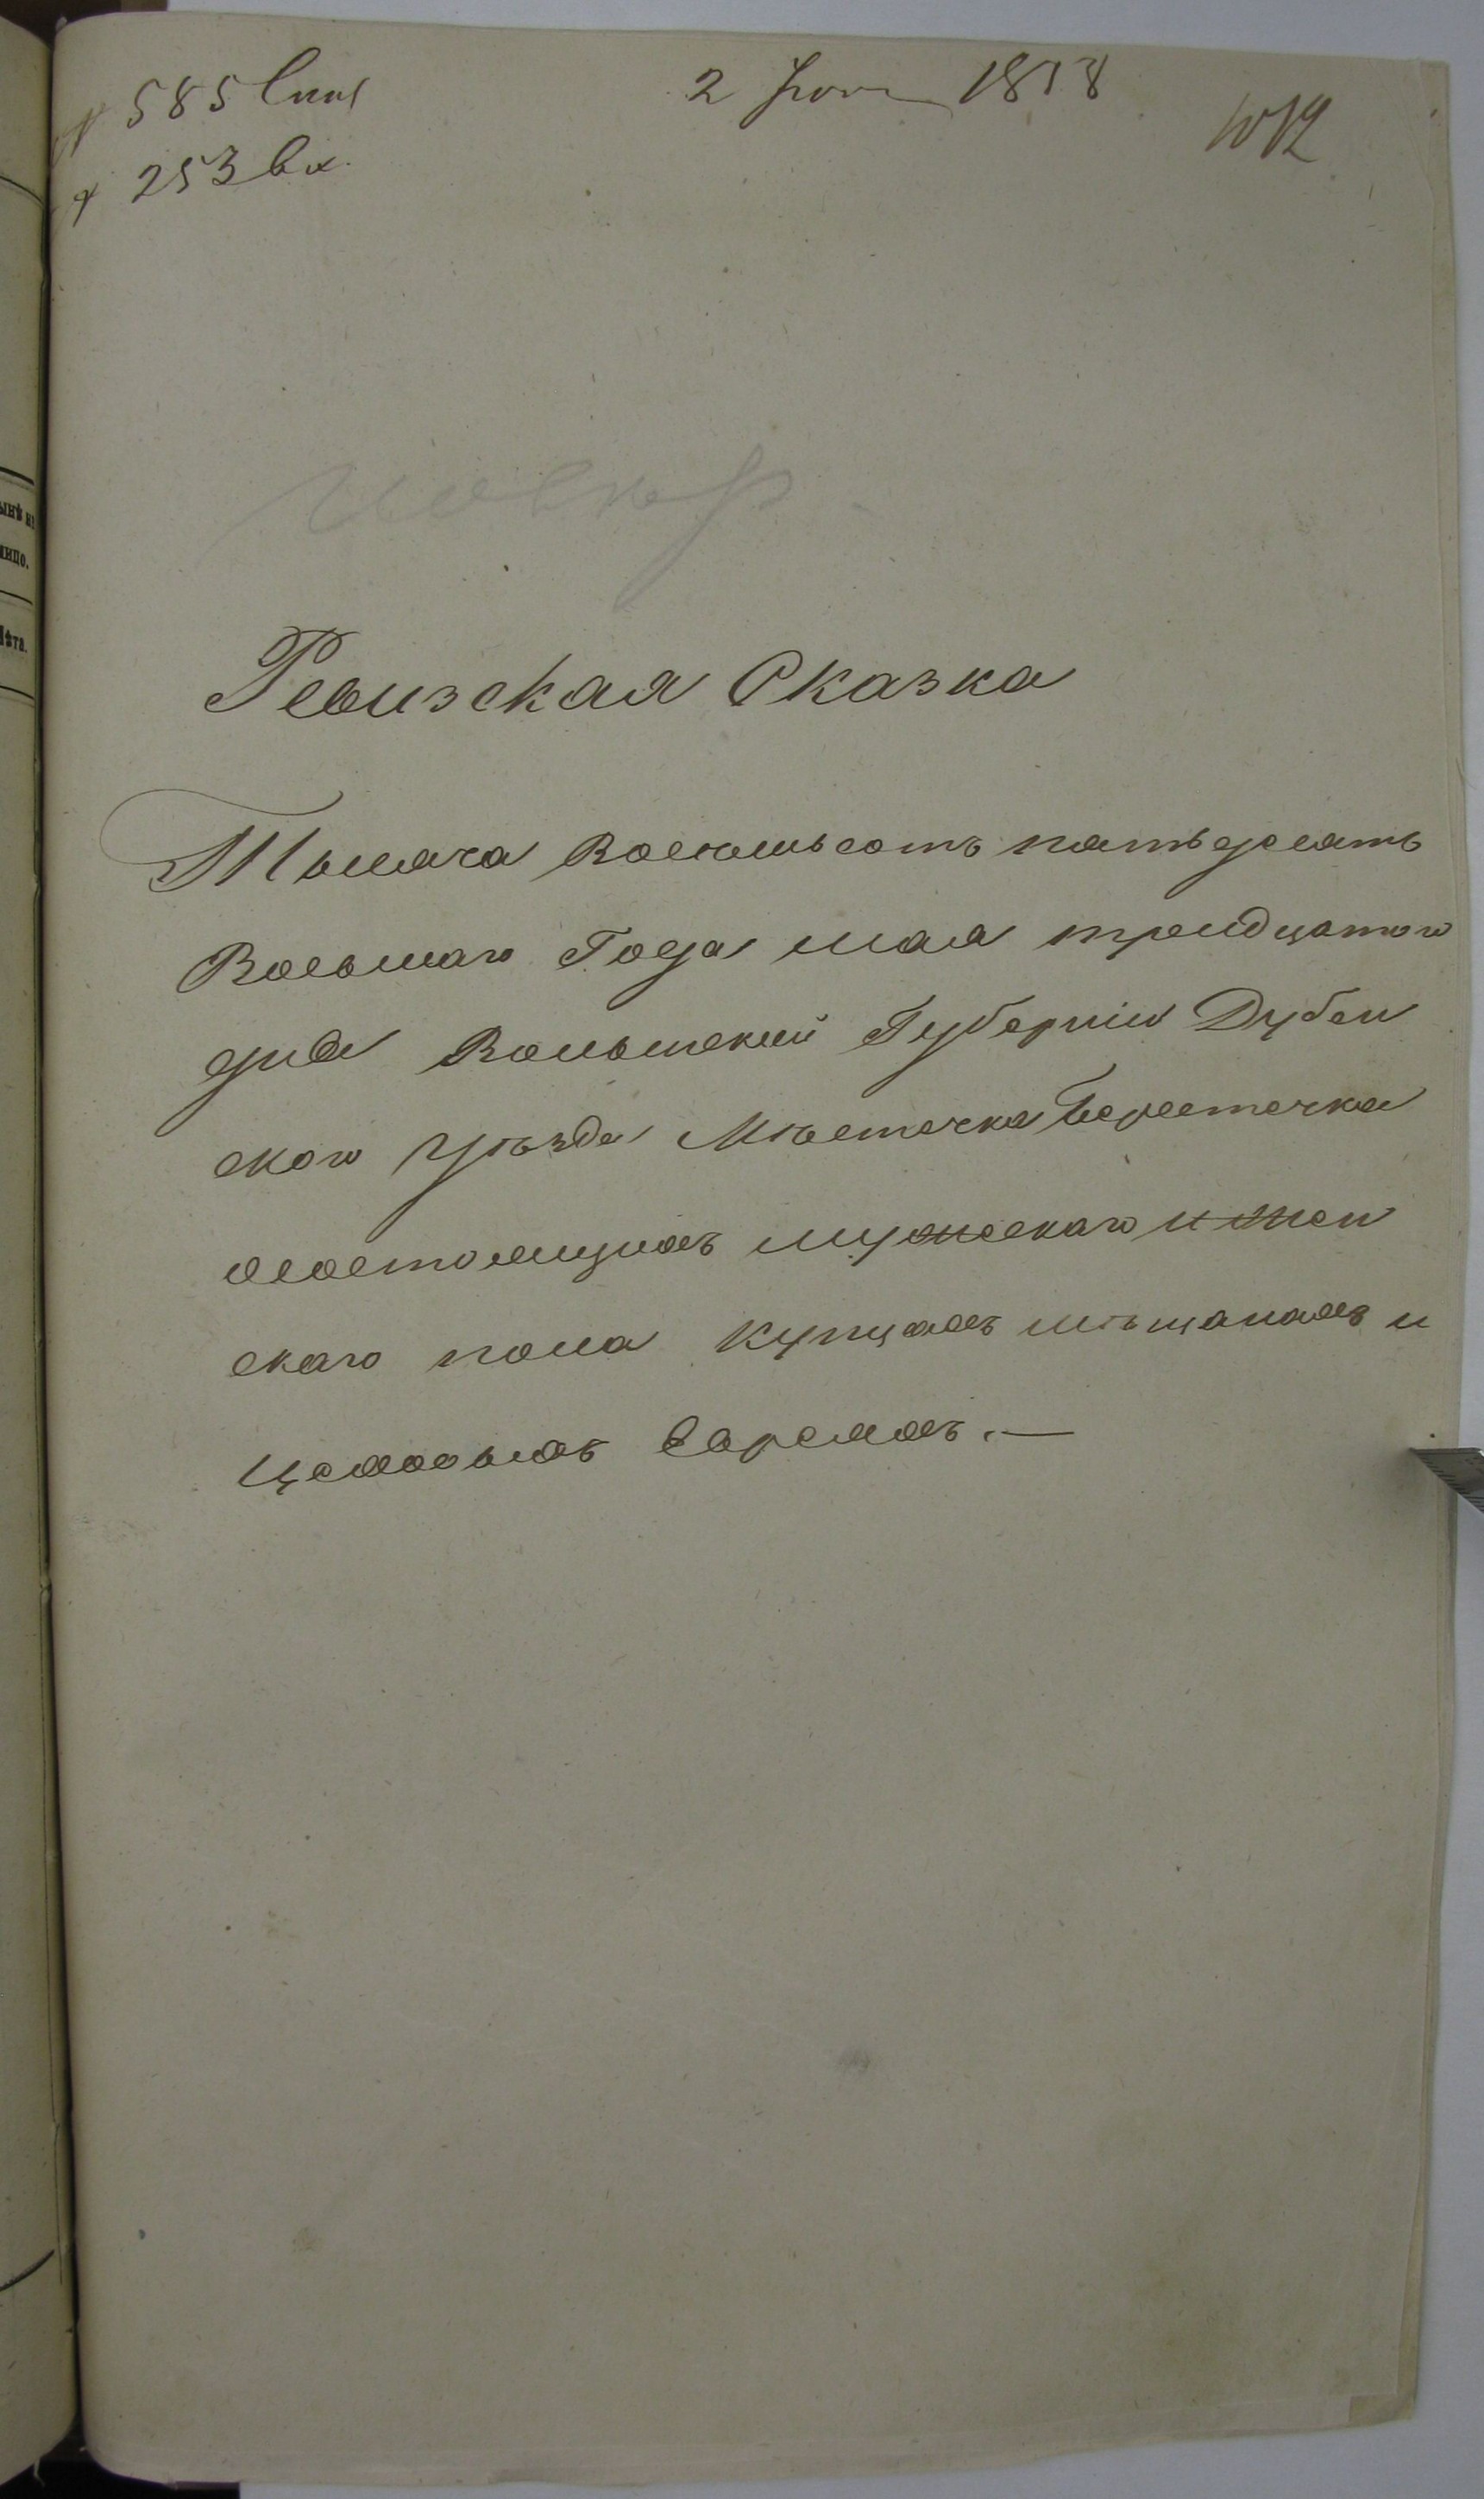 № 585 
№ 253 вх.
2 Іюня 1858
Ревизская Сказка
Тысяча Восемьсотъ пятьдесятъ
Восьмаго Года мая тридцатого
дня Волынский Губерніи Дубен
ского Уѣзда Мѣстечка Берестечка
состоящихъ мужескаго и жен
скаго пола купцахъ мѣщанахъ и
цеховыхъ Евреяхъ.—
ынѣ н
лицо.
Лѣта.